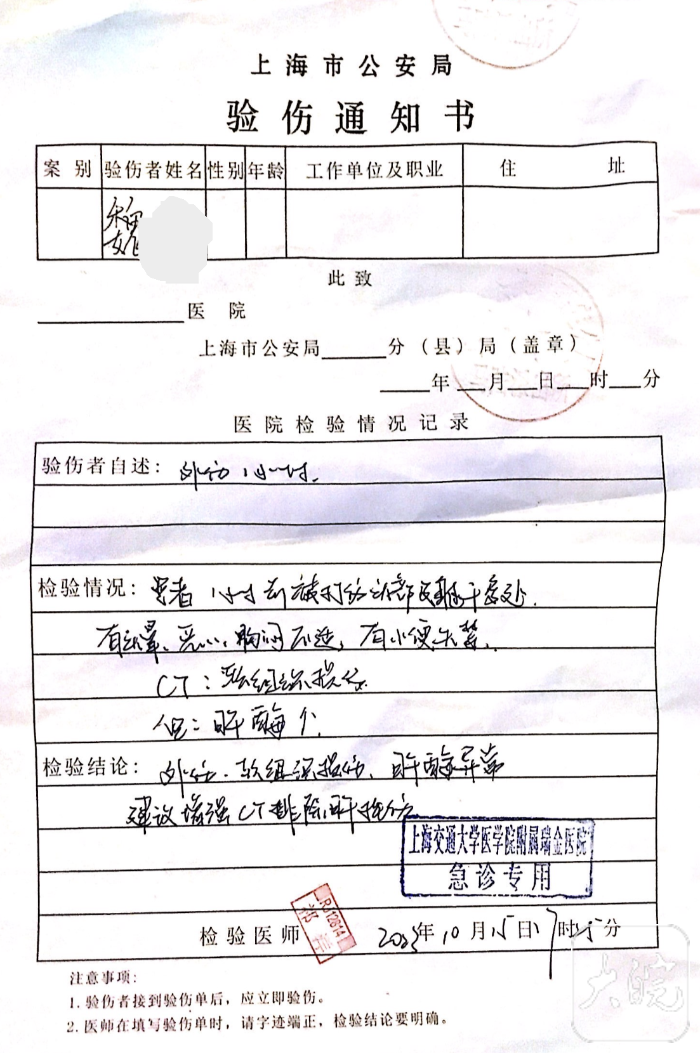 上海市公安局
验伤通知书
案别 验伤者姓名 性别 年龄 工作单位及职业 住址
此致
医院
上海市公安局 分（县）局（盖章）
年 月 日 时 分
医院检验情况记录
验伤者自述：外伤1小时.
检验情况：患者1小时前被打伤头部及躯干多处.
有头晕、恶心、胸闷不适，有小便失禁.
CT：软组织损伤.
肝酶个
检验结论：外伤、软组织损伤、肝酶异常
建议增强CT排除肝损伤
上海交通大学医学院附属瑞金医院
急诊专用
RJ12614
检验医师 2023年10月15日 时 分
注意事项：
1. 验伤者接到验伤单后，应立即验伤。
2. 医师在填写验伤单时，请字迹端正，检验结论要明确。
大皖